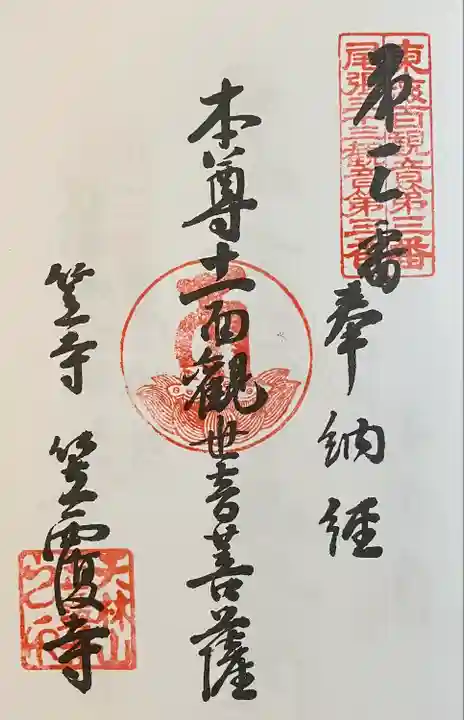 東海百觀音第三番
尾張三十三觀音第三番
第三番 奉納経
本尊十一面觀世音菩薩
笠寺 笠覆寺
天林山